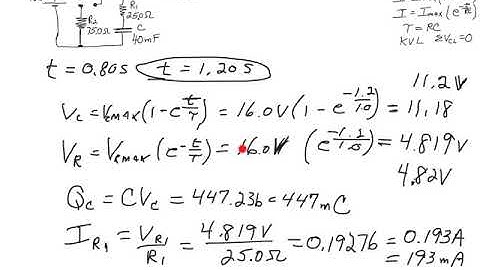 R₁
25.0Ω
R₂
75.0Ω
C
40mF
I = Imax(e^-t/τ)
τ = RC
KVL ΣVcL=0
t = 0.80s t = 1.20s
11.2V
Vc = Vcmax(1-e^-t/τ) = 16.0V(1-e^-1.2/1.0) = 11.18
VR = VRmax(e^-t/τ) = 16.0V (e^-1.2/1.0) = 4.819V
4.82V
Qc = CVc = 447.236 = 447mC
IR₁ = VR₁/R₁ = 4.819V/25.0Ω = 0.19276 = 0.193A
= 193mA